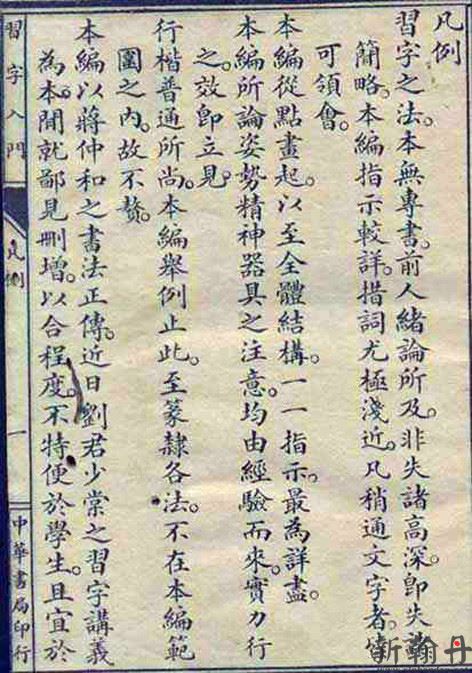 凡例
習字之法。本無專書。前人緒論所及。非失諸高深。卽失
簡略。本編指示較詳。措詞尤極淺近。凡稍通文字者。皆
可領會。
本編從點畫起。以至全體結構。一一指示。最為詳盡。
本編所論姿勢精神器具之注意。均由經驗而來。實力行
之。效卽立見。
行楷普通所尚。本編舉例止此。至篆隸各法。不在本編範
圍之內。故不贅。
本編以蔣仲和之書法正傳。近日劉君少棠之習字講義
為本。間就鄙見刪增。以合程度。不特便於學生。且宜於
習字入門
凡例
一
中華書局印行
新翰丹